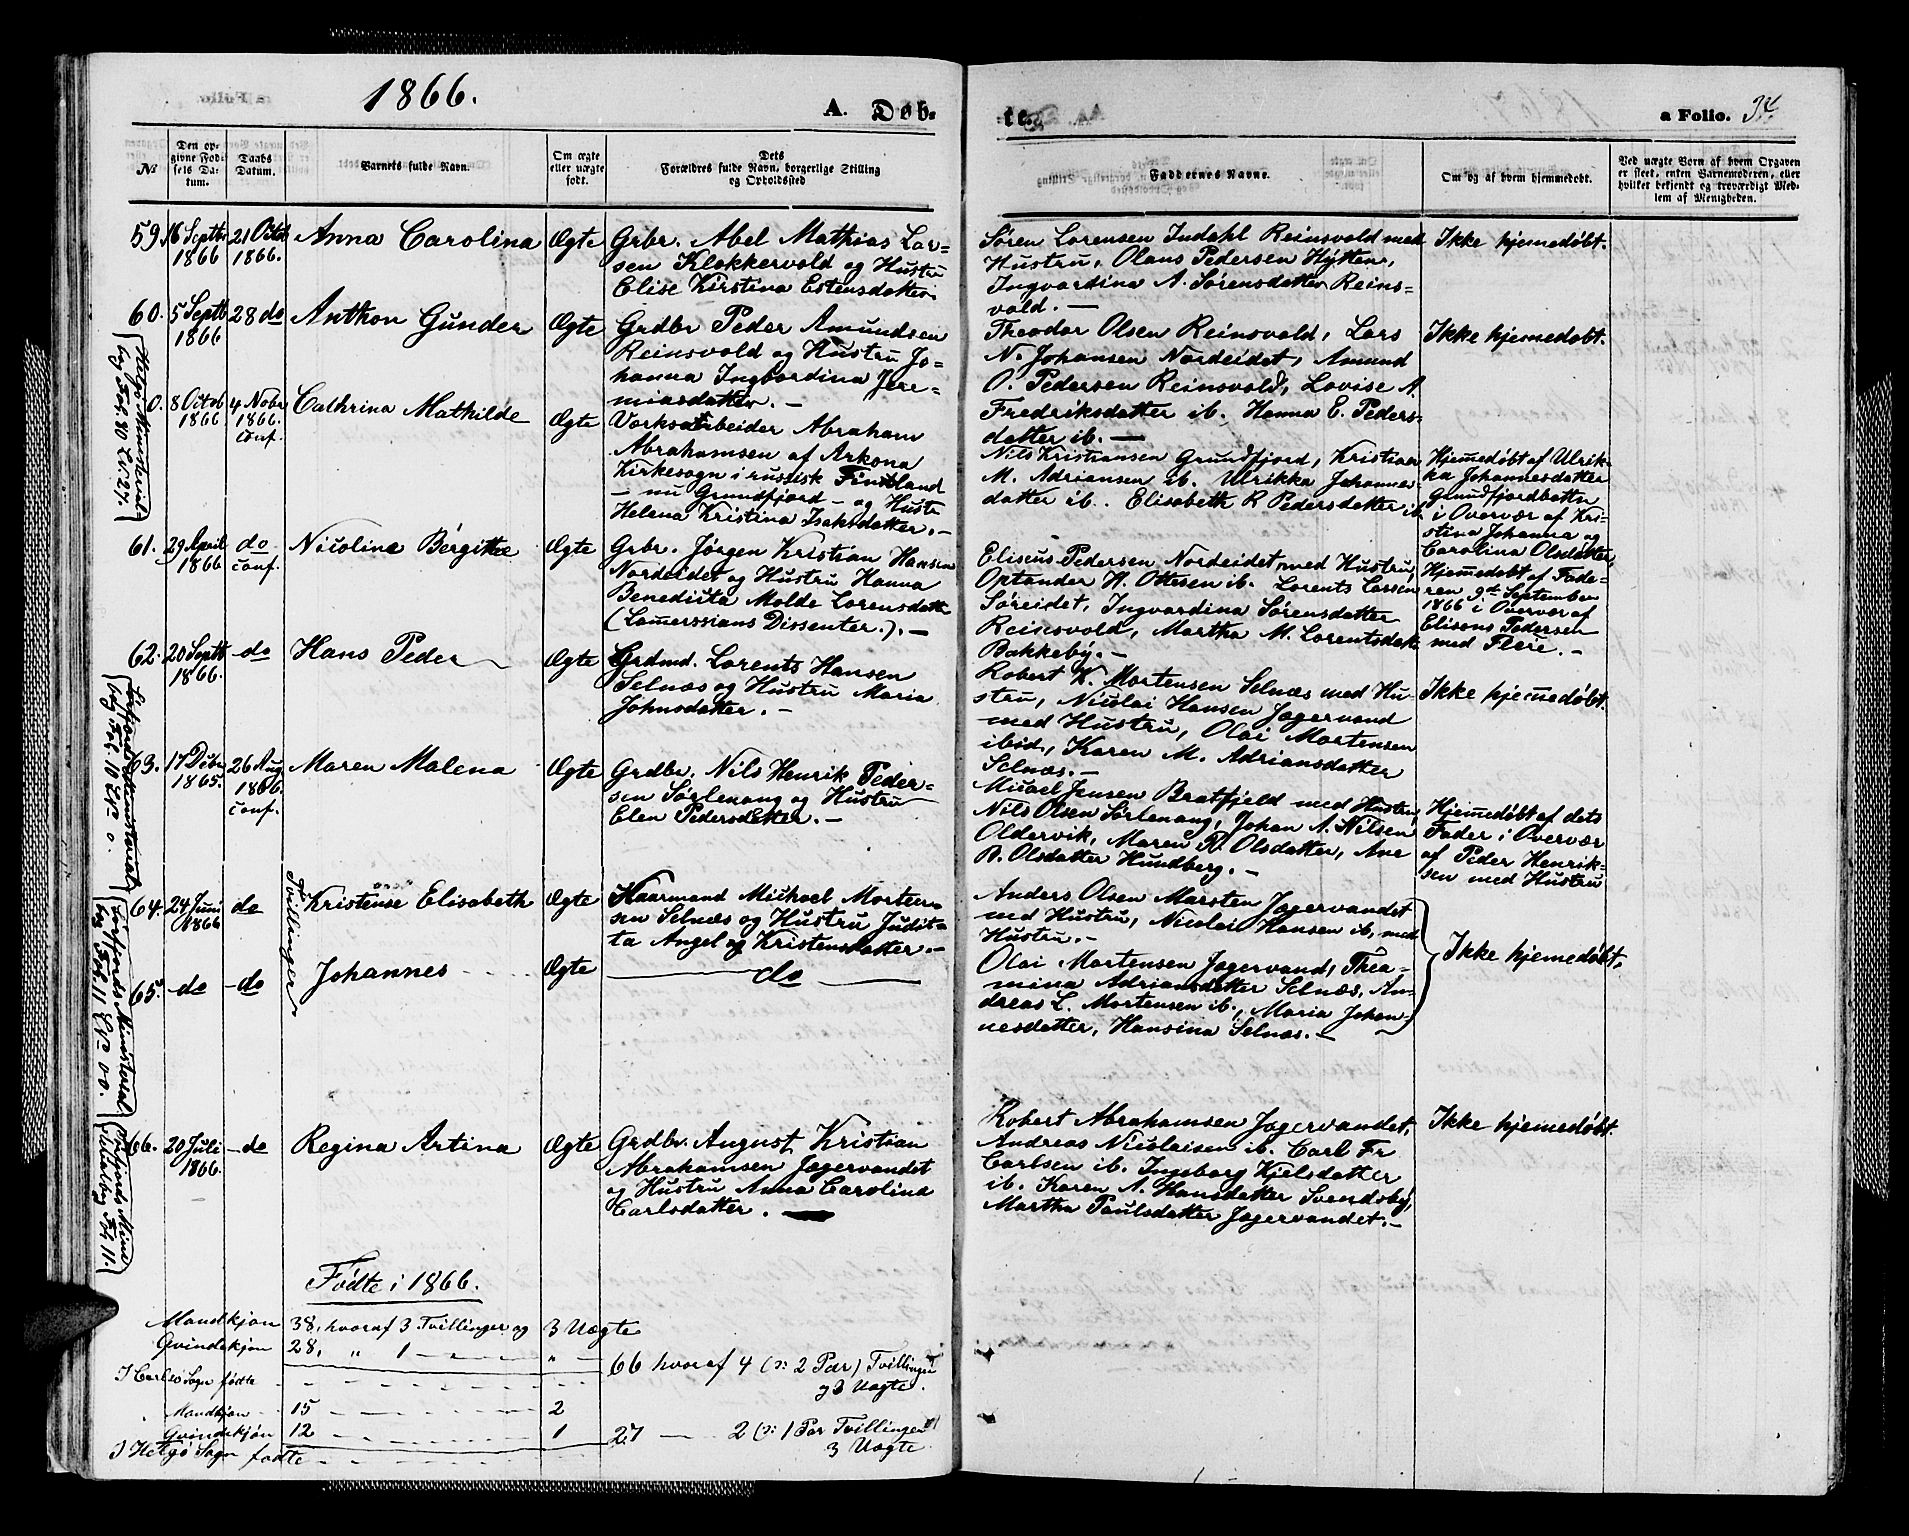 1866.
A. Døb-
№
Den op-
givne Fød-
sels Da-
tum.
Daabs
Datum.
Barnets fulde Navn.
Om ægte
eller uægte
født.
Dets
Forældres fulde Navn, borgerlige Stilling
og Opholdssted
59. 16 Septbr 1866 21 Octob 1866. Anna Carolina Ægte
Grbr. Abel Mathias Lar-
sen Klokkervold og Hustru
Elise Kirstina Estensdatter.
60. 5 Septb 1866 28 do Anthon Gunder Ægte
Grdbr Peder Amundsen
Reinsvold og Hustru Jo-
hanna Ingvardina Jere-
miasdatter. —
0. 8 Octob 1866 4 Nobr 1866. conf. Cathrina Mathilde Ægte
Værksarbeider Abraham
Abrahamsen af Arkona
Kirkesogn i russisk Finland
— nu Grundfjord — og Hustr
Helena Kristina Isaksdatter. —
61. 29 April 1866 do conf. Nicoline Bergitte Ægte
Grbr. Jørgen Kristian Hansen
Nordeidet og Hustru Hanna
Benedicta Molde Lorensdatt
(Lamerssians Dissenter.). —
62. 20 Septb 1866. do Hans Peder Ægte
Grdmd. Lorents Hansen
Selnæs og Hustru Maria
Johnsdatter. —
63. 17 Dcbr 1865. 26 Aug 1866. conf. Maren Malena Ægte
Grdbr. Nils Henrik Peder-
sen Sørlenang og Hustru
Elen Pedersdatter. —
Tvillinger
64. 24 Juni 1866 do Kristense Elisabeth Ægte
Haarmand Michael Morten-
sen Selnæs og Hustru Judit-
ta Angel og Kristensdatter. —
65. do do Johannes Ægte
do
66. 20 Juli 1866. do Regina Artina Ægte
Grdbr. August Kristian
Abrahamsen Jægervandet
og Hustru Anna Carolina
Carlsdatter.
Helgø Ministerial
bog Fol. 80 № 27.
bog Fol. 10 № 0.
Lyngens Ministerial
bog Fol. 11 № 0 0.
Fol 11.
Fødte i 1866.
Mandkjøn 38, hvoraf 3 Tvillinger og 3 Uægte
Qvindekjøn 28, " 1 — " —
I Carlsø Sogn fødte 66 hvoraf 4 (ɔ: 2 Par) Tvillinger
og 3 Uægte.
Mandkjøn 15 2
Qvindekjøn 12 1
I Helgø Sogn fødte 27 — 2 (ɔ: 1 Par Tvillinger
3 Uægte.
te.
a Folio. 34
Faddernes Navne.
Om og af hvem hjemmedøbt.
Ved uægte Børn af hvem Opgaven
er skeet, enten Barnemoderen, eller
hvilket bekjendt og troværdigt Med-
lem af Menigheden.
Søren Lorensen Indahl Reinsvold med
Hustru, Olaus Pedersen Hytten,
Ingvardina A. Sørensdatter Reins-
vold. —
Ikke hjemedøbt.
Theodor Olsen Reinsvold, Lars
N. Johansen Nordeidet, Amund
O. Pedersen Reinsvold, Lovise A.
Fredriksdatter ib. Hanna E. Peders-
datter ib. —
Ikke hjemedøbt.
Nils Kristiansen Grundfjord, Kristian
M. Adriansen ib. Ulrikka Johannes-
datter ib. Elisabeth R Pedersdatter ib.
Hjemedøbt af Ulrik-
ka Johannesdatter
Grundfjordbotn
i Overvær af Kri-
stina Johanna og
Carolina Olsdatter.
Eliseus Pedersen Nordeidet med Hustru,
Optander W. Ottesen ib. Lorents Larsen
Søreidet, Ingvardina Sørensdatter
Reinsvold, Martha M. Lorentsdatt
Bakkeby. —
Hjemedøbt af Fade-
ren 9de September
1866 i Overvær af
Eliseus Pedersen
med Flere. —
Robert K. Mortensen Selnæs med Hu-
stru, Nicolai Hansen Jægervand
med Hustru, Olai Mortensen
ibid, Karen M. Adriansdatter
Selnæs. —
Ikke hjemedøbt.
Micael Jensen Bratfjeld med Hustru,
Nils Olsen Sørlenang, Johan A. Nilsen
Oldervik, Maren R. Olsdatter, Ane
B. Olsdatter Hundberg. —
Hjemedøbt af dets
Fader i Overvær
af Peder Henrik-
sen med Hustru
Anders Olsen Marsten Jægervandet
med Hustru, Nicolai Hansen ib, med
Hustru. —
Olai Mortensen Jægervand, Thea-
mina Adriansdatter Selnæs, An-
dreas L. Mortensen ib., Maria Johan-
nesdatter, Hansina Selnæs. —
Ikke hjemedøbt.
Robert Abrahamsen Jægervandet,
Andreas Nicolaisen ib. Carl Fr
Carlsen ib. Ingeborg Kjelsdatter
ib. Karen A. Hansdatter Svendsby,
Martha Paulsdatter Jægervandet. —
Ikke hjemedøbt.